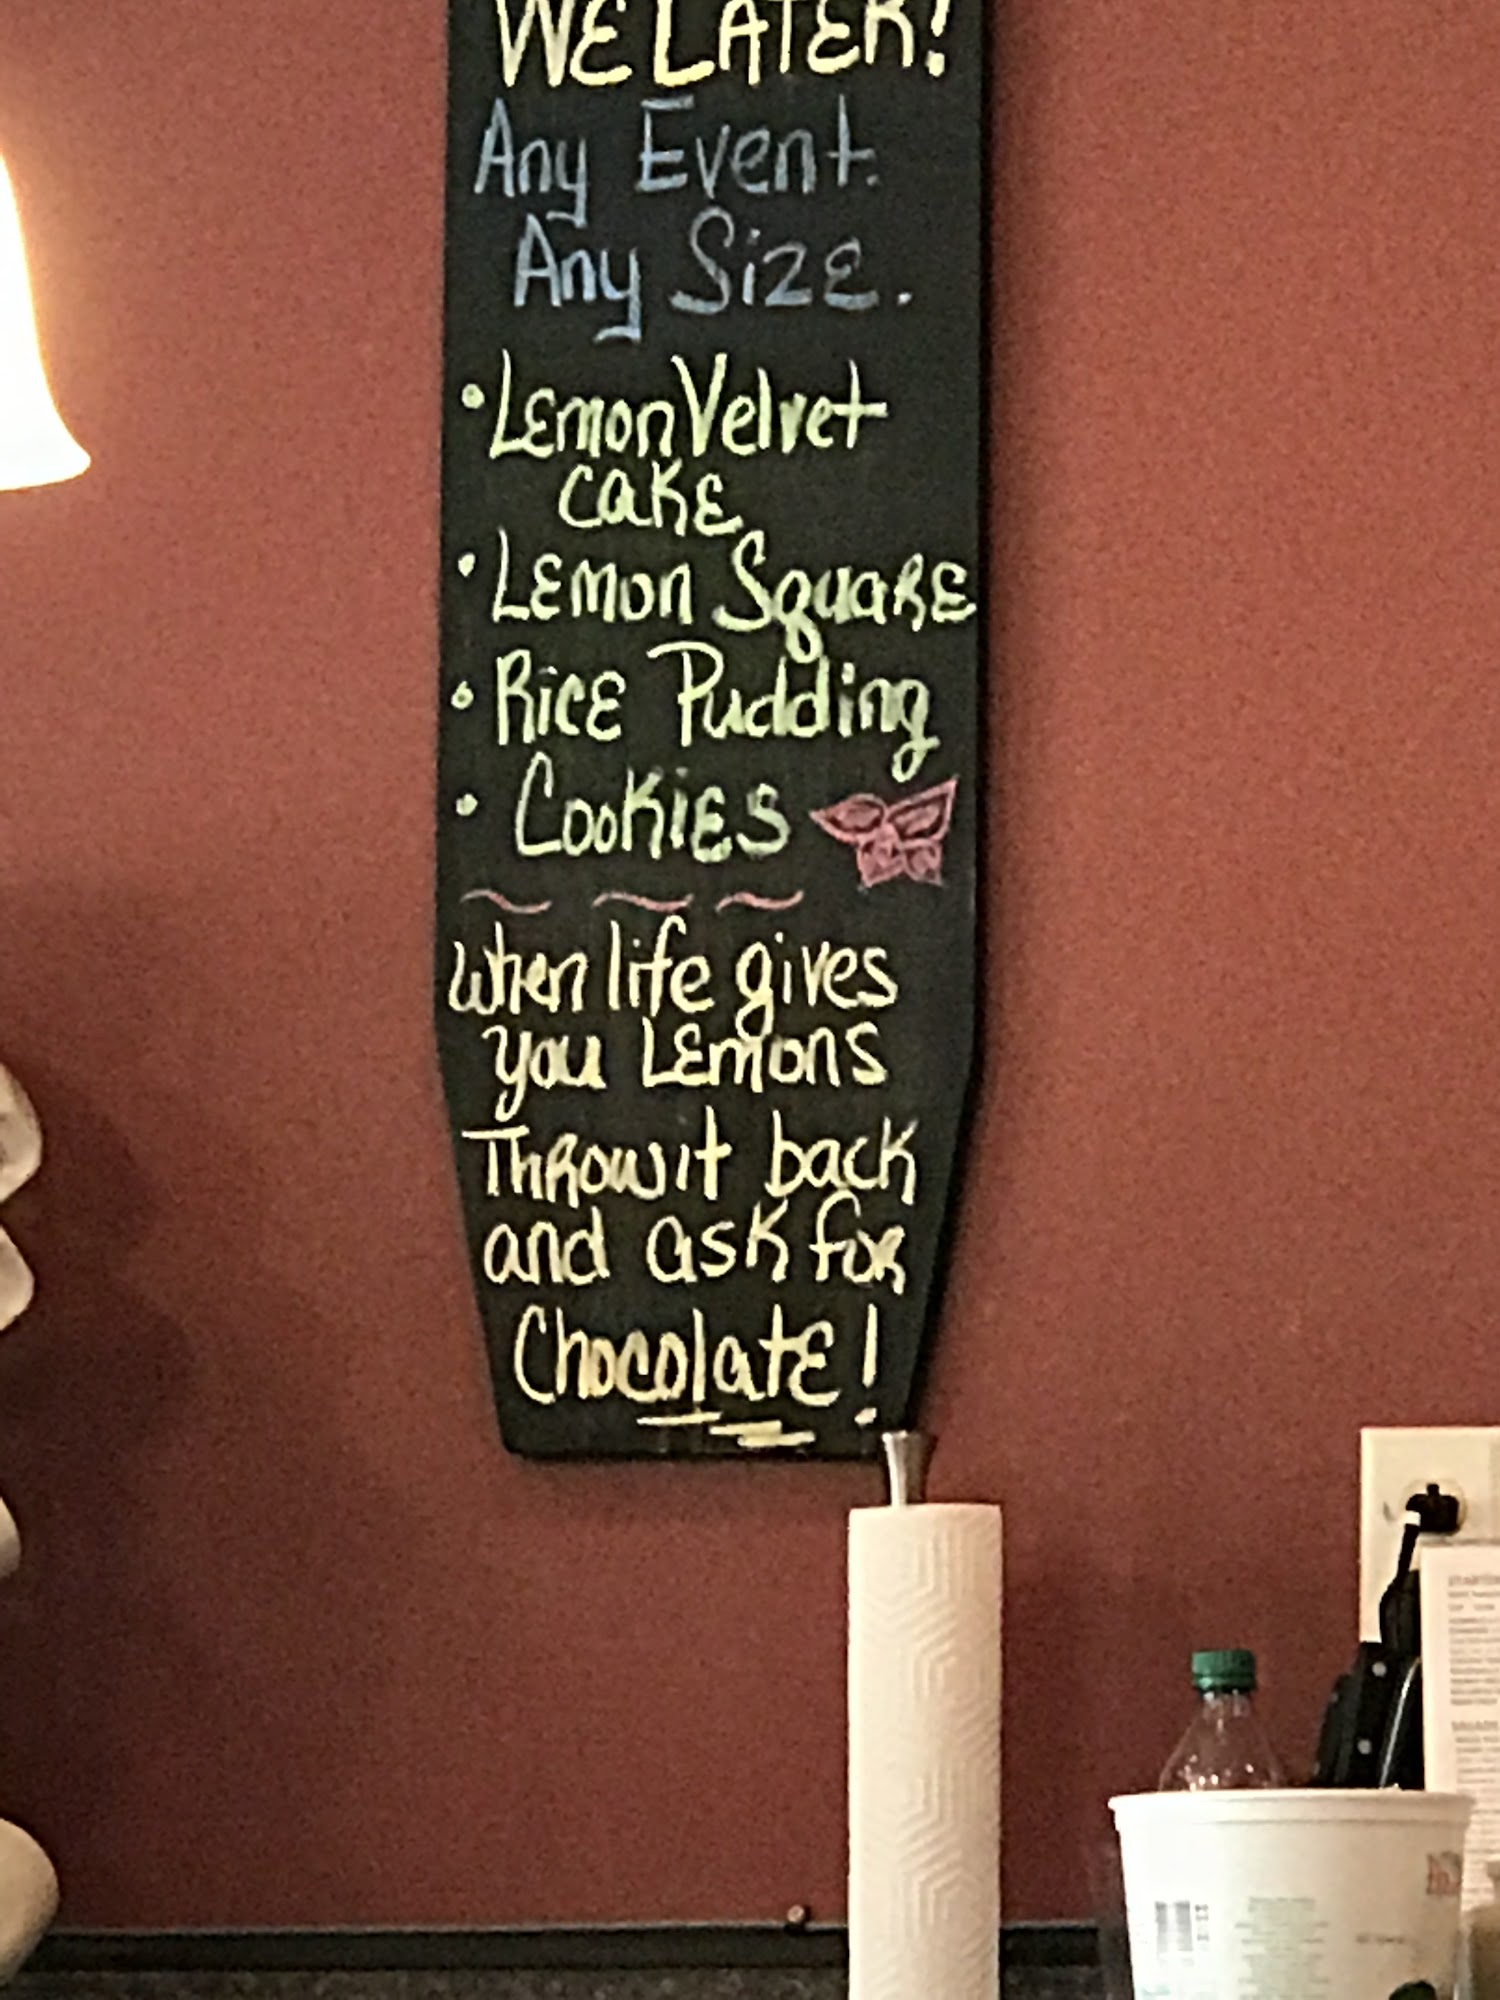 WE LATER!
Any Event.
Any Size.
• Lemon Velvet
Cake
• Lemon Square
• Rice Pudding
• Cookies
When life gives
you Lemons
Throw it back
and ask for
Chocolate!